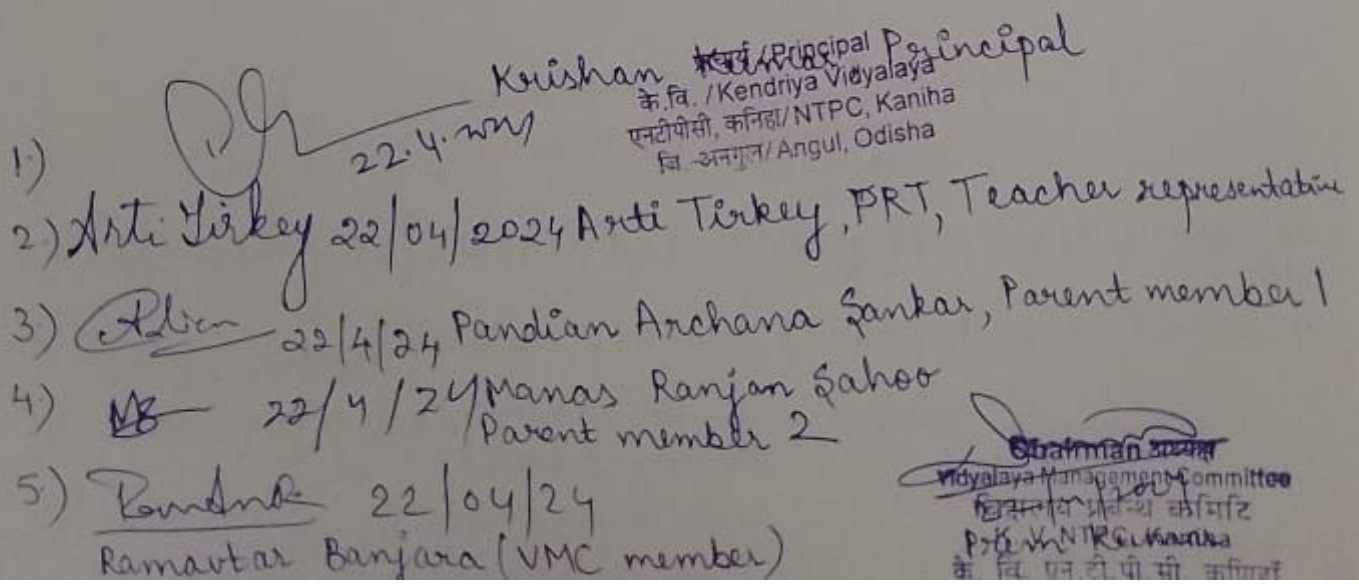 Krishan Principal
प्राचार्य/Principal
के.वि. /Kendriya Vidyalaya
एनटीपीसी, कनिहा/ NTPC, Kaniha
जि.-अनगुल/ Angul, Odisha
1.) 22.4.2024
2.) Arti Tirkey 22/04/2024 Arti Tirkey, PRT, Teacher representative
3) 22/4/24 Pandian Archana Sankar, Parent member 1
4) 22/4/24 Manas Ranjan Sahoo
Parent member 2
5.) 22/04/24
Ramavtar Banjara (VMC member)
Chairman अध्यक्ष
Vidyalaya Management Committee
विद्यालय प्रबन्ध कमिटि
के. वि. एन.टी.पी.सी. कणिहाँ